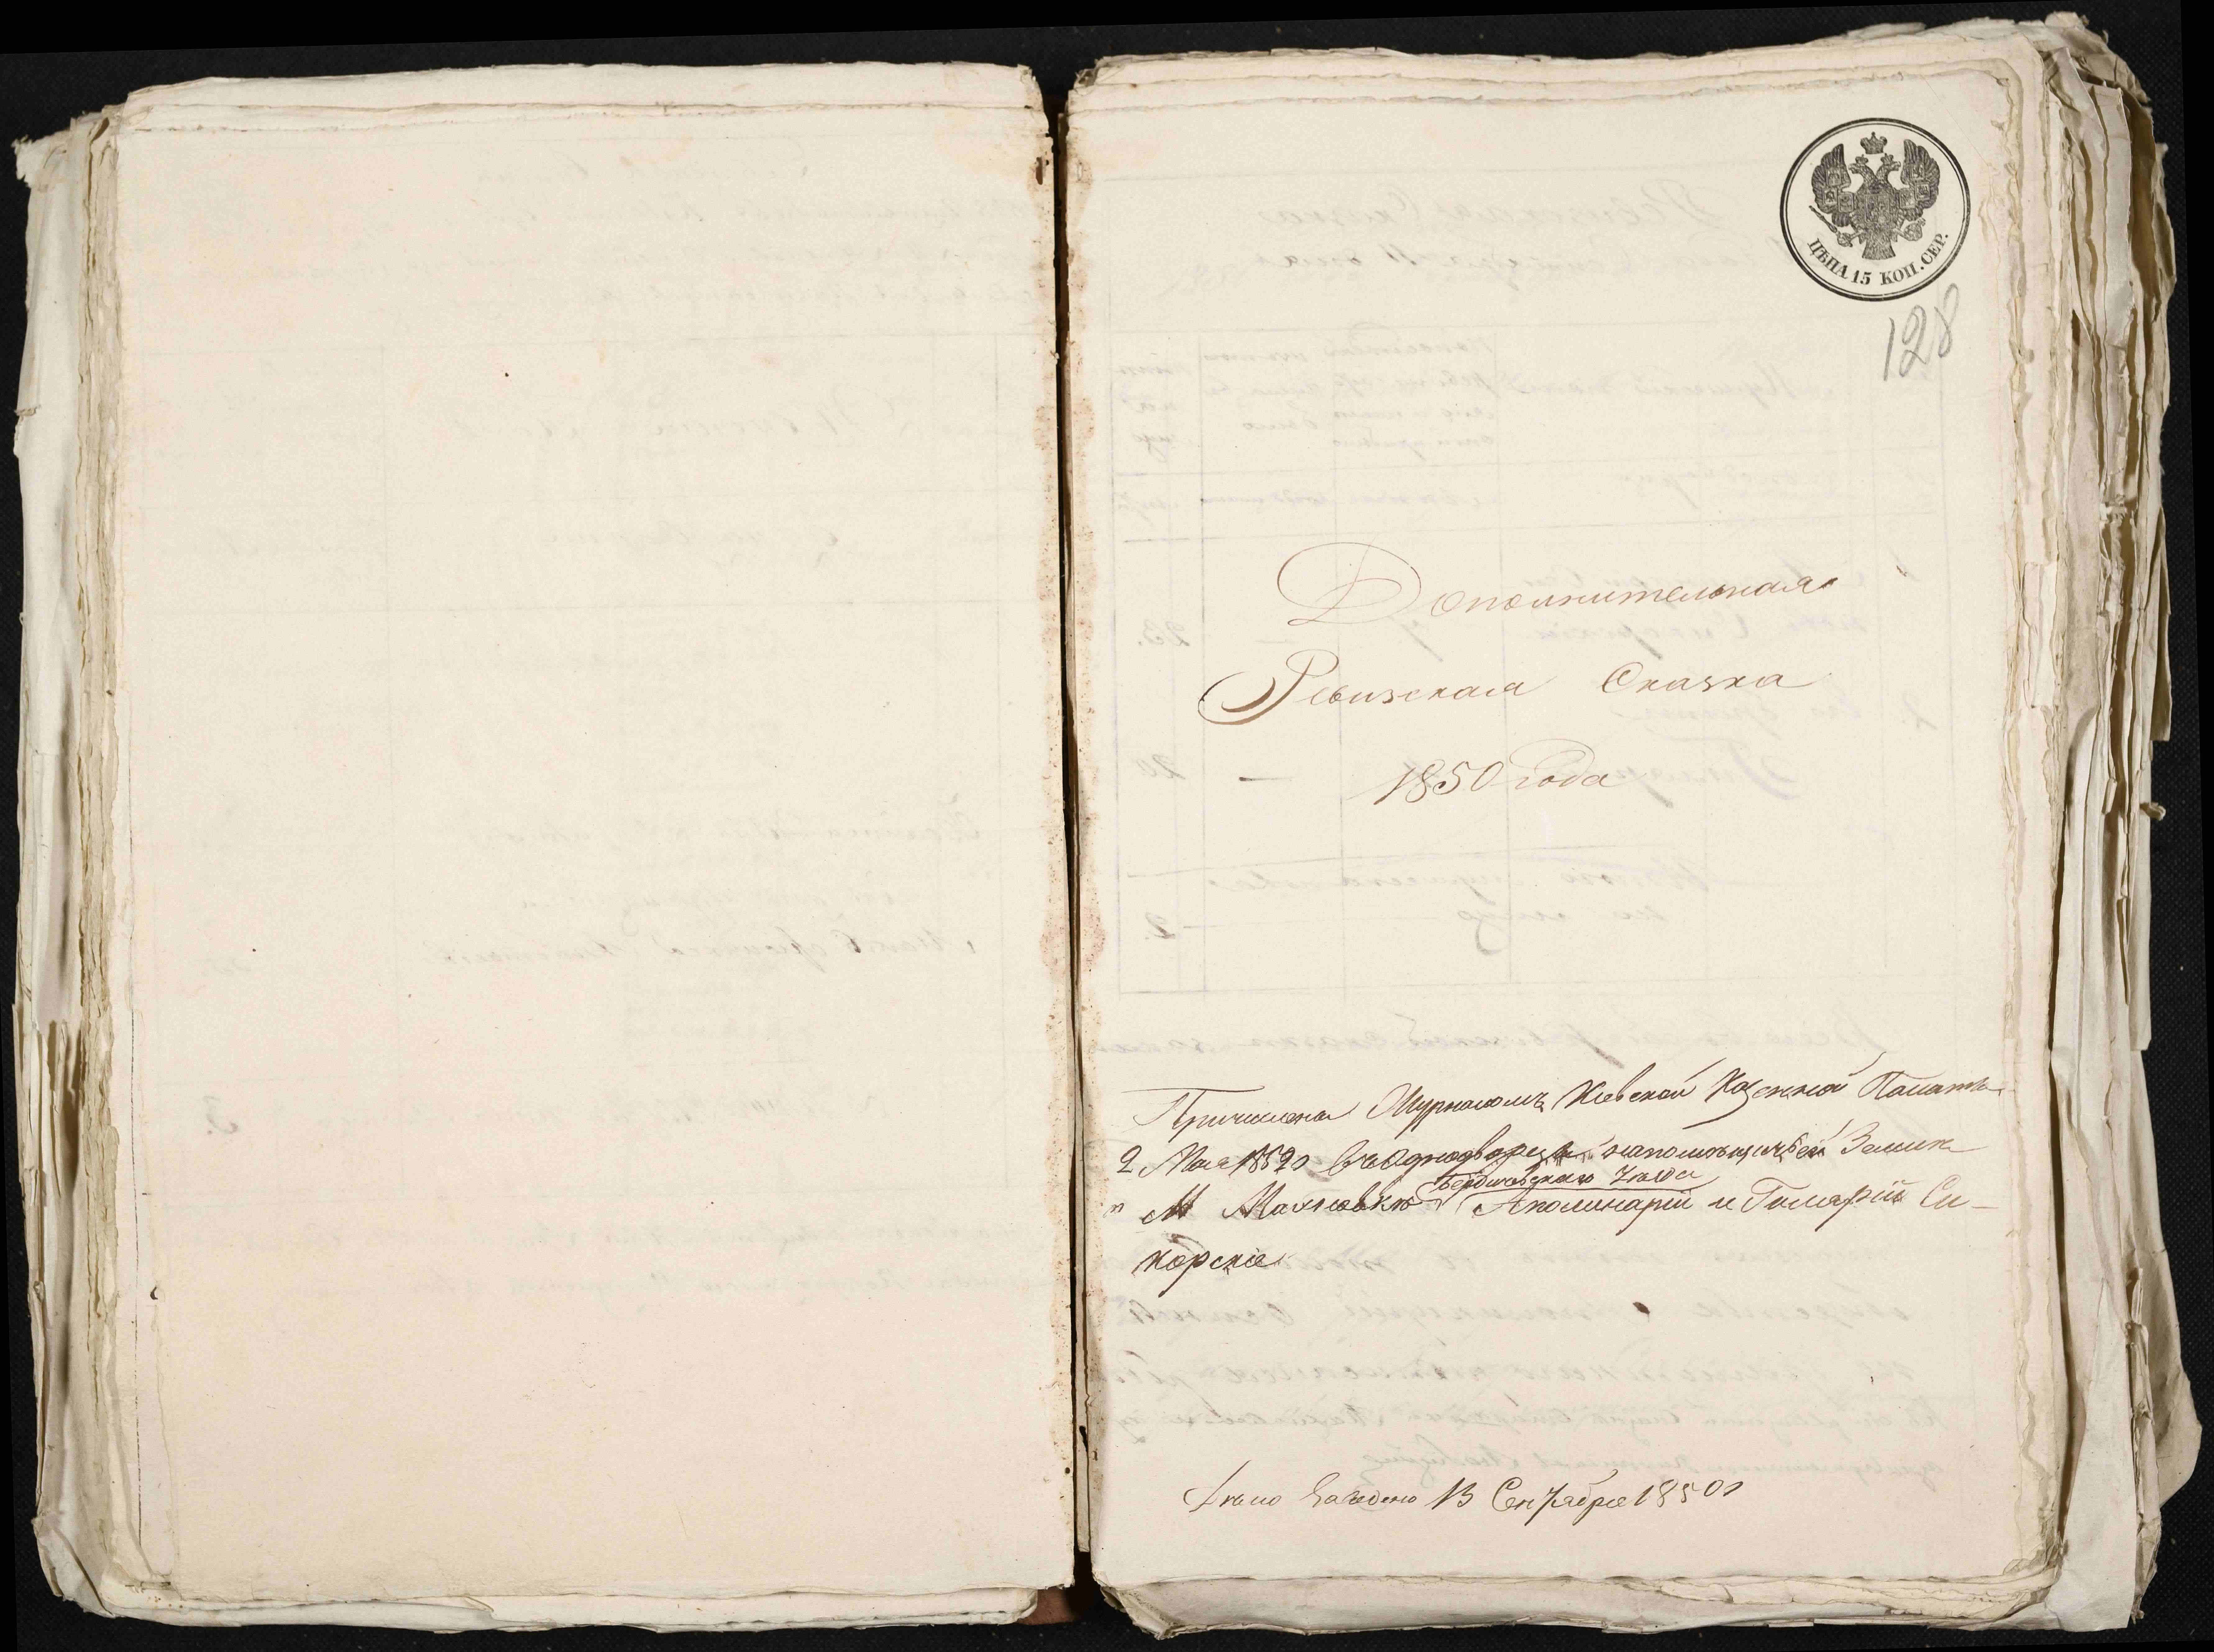 ЦѢНА 15 КОП. СЕР.
128
Дополнительная
Ревизская Сказка
1850 года
Причислены Журналомъ Кіевской Казенной Палаты
2 Мая 1852 въ Однодворцы на помѣщичьей Земли
Бердичевскаго Уѣзда
М Махновкѣ Аполинарій и Гиларій Си-
корскіе
Дѣло Заведено 13 Сентября 1850